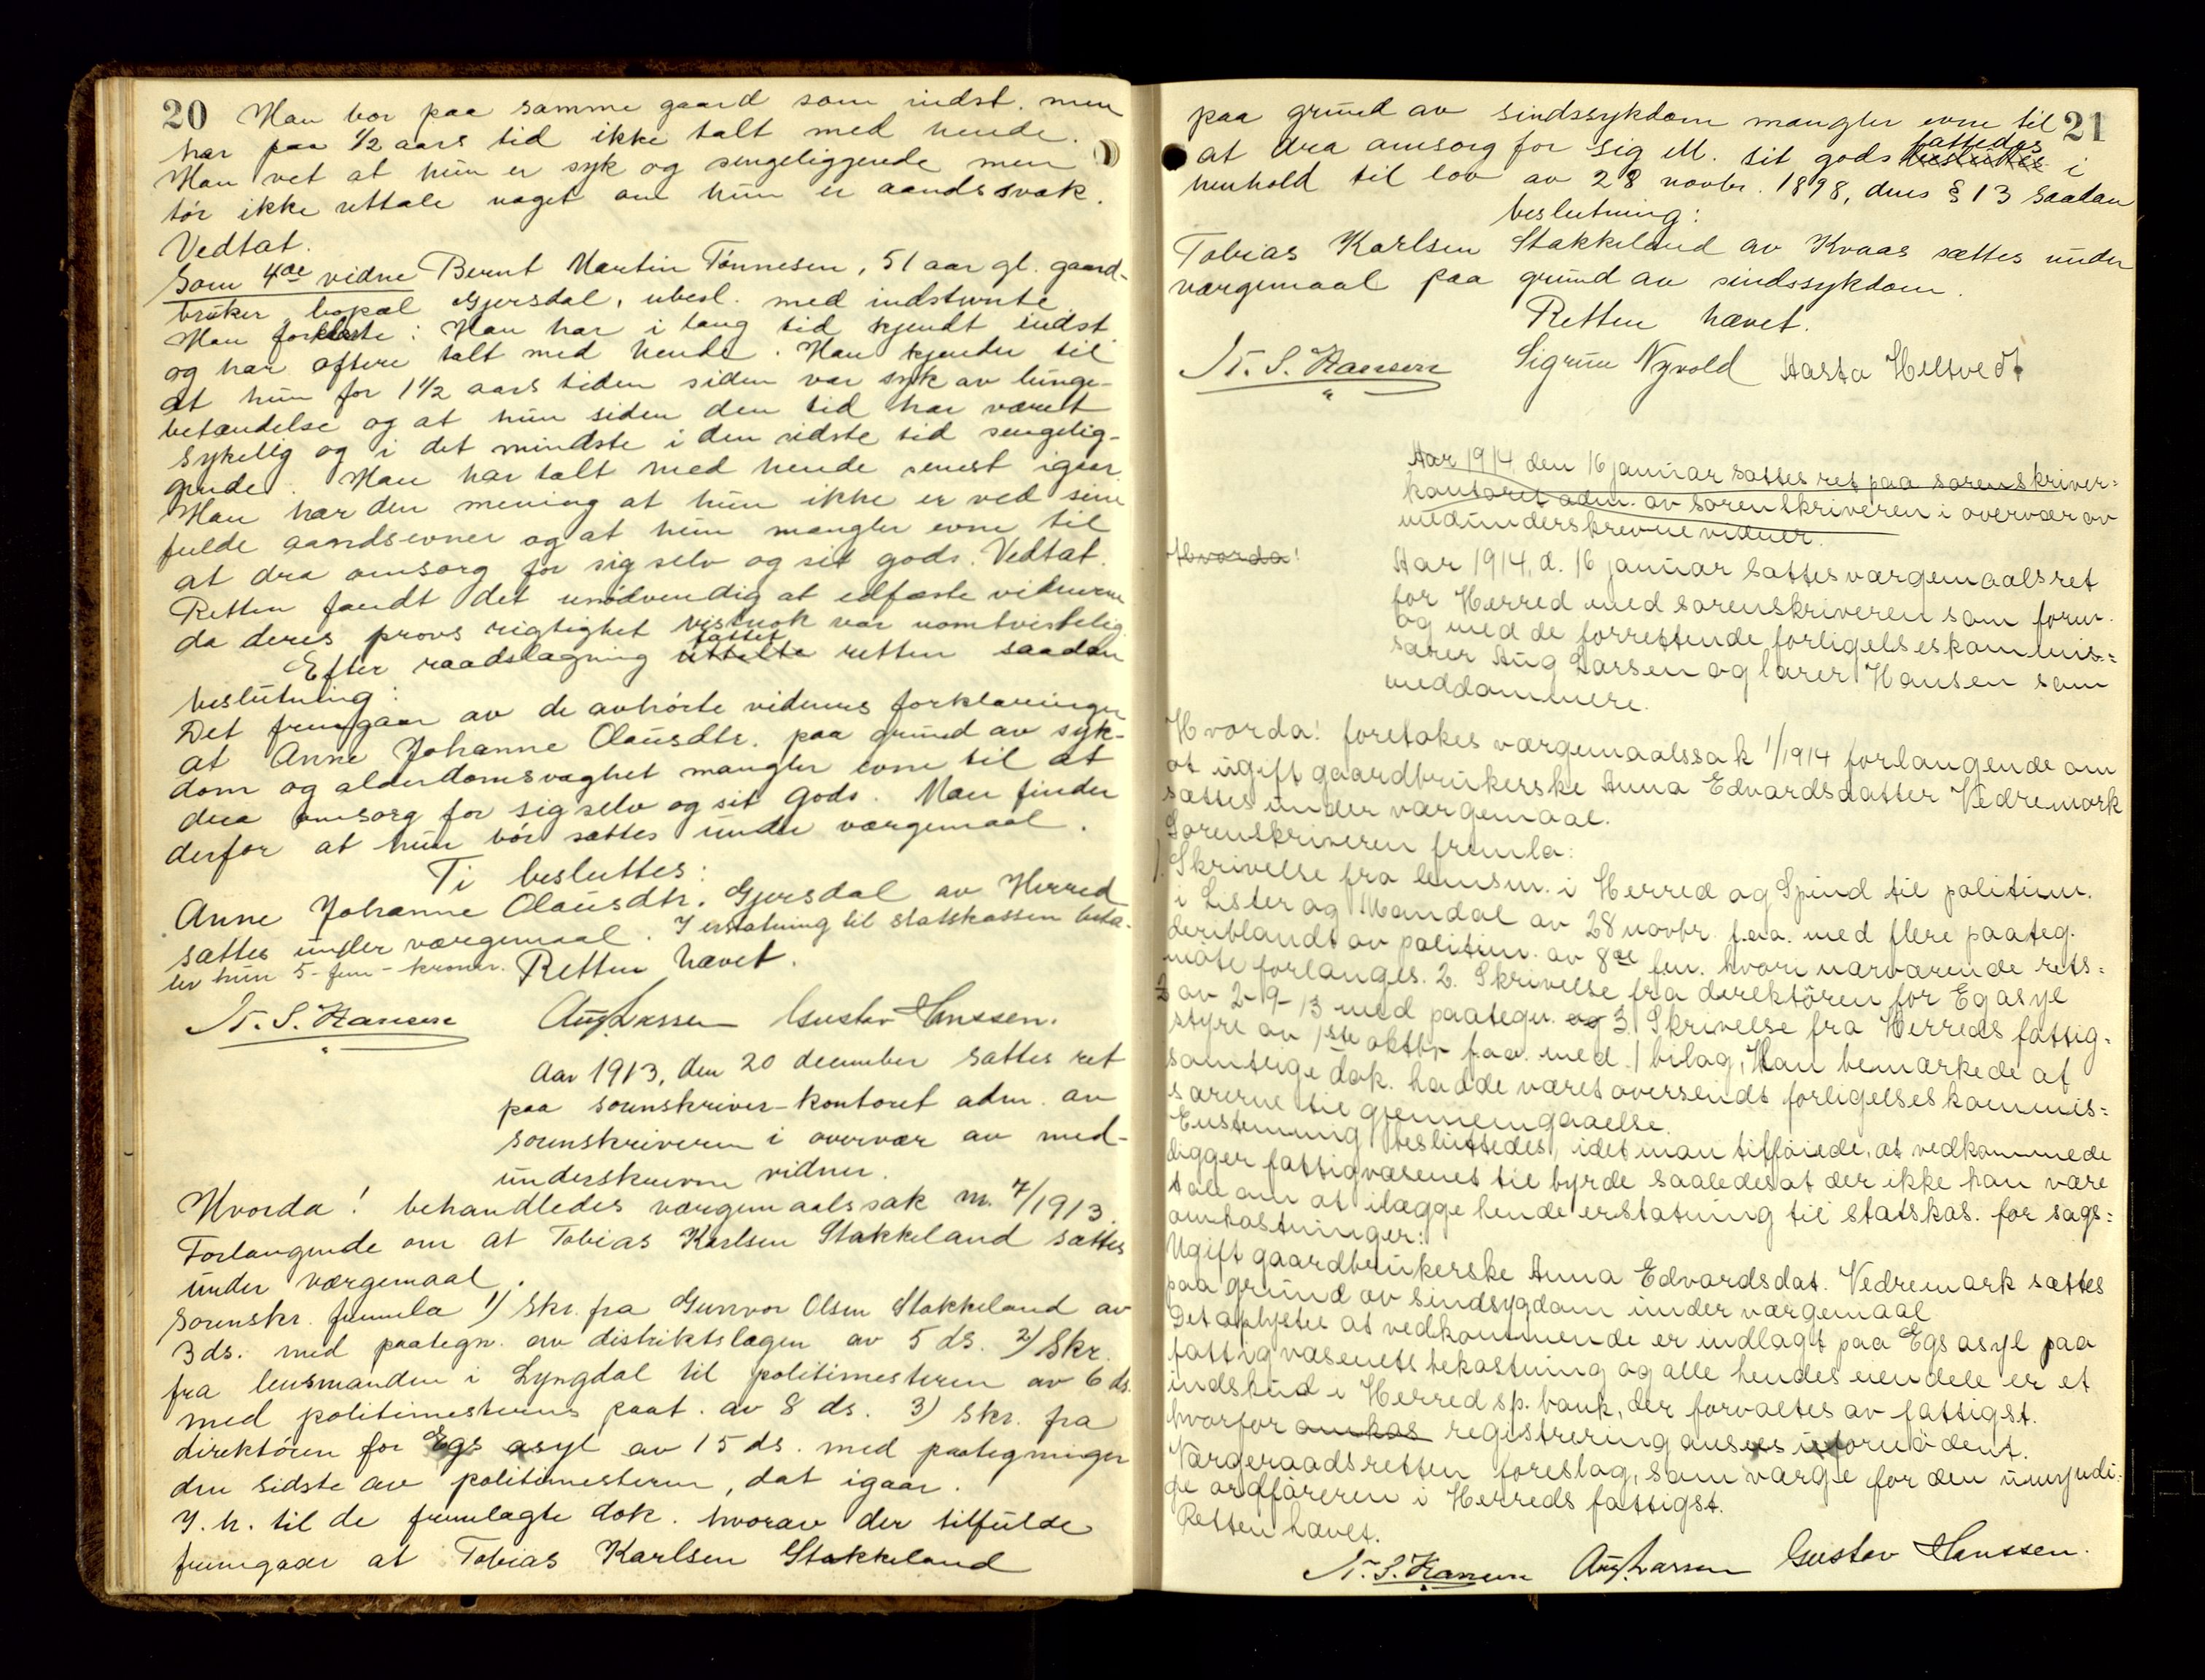 20 Han bor paa samme gaard som indst. men
har paa 1/2 aars tid ikke talt med hende.
Han vet at hun er syk og sengeliggende men
tør ikke uttale noget om hun er aandssvak.
Vedtat.
Som 4de vidne Bernt Martin Tønnesen, 51 aar gl. gaard-
bruker, bopæl Gjersdal, ubesl. med indstevnte.
Han forklarte: Han har i lang tid kjendt indst.
og har oftere talt med hende. Han kjender til
at hun for 1 1/2 aars tiden siden var syk av lunge-
betændelse og at hun siden den tid har været
sykelig og i det mindste i den sidste tid sengelig-
gende. Han har talt med hende senest igaar.
Han har den mening at hun ikke er ved sine
fulde aandsevner og at hun mangler evne til
at dra omsorg for sig selv og sit gods. Vedtat.
Retten fandt det unødvendig at edfæste vidnerne
da deres provs rigtighet vistnok var uomtvistelig.
Efter raadslagning uttelte fattet retten saadan
beslutning:
Det fremgaar av de avhørte vidners forklaringer
at Anne Johanne Olausdtr. paa grund av syk-
dom og alderdomsvaghet mangler evne til at
dra omsorg for sig selv og sit gods. Man finder
derfor at hun bør sættes under værgemaal.
Ti besluttes:
Anne Johanne Olausdtr. Gjersdal av Herred
sættes under værgemaal. I erstatning til statskassen beta-
ler hun 5 - fem - kroner. Retten hævet.
N. S. Hansen Aug Larsen Gustav Hanssen.
Aar 1913, den 20 december sattes ret
paa sorenskriver-kontoret adm. av
sorenskriveren i overvær av med-
underskrevne vidner.
Hvorda! behandledes værgemaalssak nr. 7/1913.
Forlangende om at Tobias Karlsen Stakkeland sættes
under værgemaal.
Sorenskr. fremla 1) Skr. fra Gunvor Olsen Stakkeland av
3 ds. med paategn. av distriktslægen av 5 ds. 2) Skr.
fra lensmanden i Lyngdal til politimesteren av 6 ds.
med politimesterens paat. av 8 ds. 3) Skr. fra
direktøren for Egs asyl av 15 ds. med paategninger
den sidste av politimesteren, dat igaar.
I. h. til de fremlagte dok. hvorav der tilfulde
fremgaar at Tobias Karlsen Stakkeland
21
paa grund av sindssykdom mangler evne til
at dra omsorg for sig ell. sit gods besluttes fattedes i
henhold til lov av 28 novbr. 1898, dens § 13 saadan
beslutning:
Tobias Karlsen Stakkeland av Kvaas sættes under
værgemaal paa grund av sindssykdom.
Retten hævet.
N. S. Hansen Sigrun Nyvold Aasta Heltvedt
Aar 1914 den 16 januar sattes ret paa sorenskriver=
kontoret adm. av sorenskriveren i overvær av
medunderskrevne vidner.
Hvorda!
Aar 1914, d. 16 januar sattes værgemaalsret
for Herred med sorenskriveren som form.
og med de forrettende forligelseskommis=
særer Aug Larsen og lærer Hansen som
meddommere.
Hvorda! foretokes værgemaalssak 1/1914 forlangende om
at ugift gaardbrukerske Anna Edvardsdatter Vedremork
sættes under værgemaal.
Sorenskriveren fremla:
1. Skrivelse fra lensm. i Herred og Spind til politim.
i Lister og Mandal av 28 novbr. f.aa. med flere paateg.
deriblandt av politim. av 8de fm. hvori nærværende rets=
møte forlanges. 2. Skrivelse fra direktøren for Eg asyl
av 2-9-13 med paategn. og 3. Skrivelse fra Herreds fattig=
styre av 1ste oktbr f.aa. med 1 bilag, Han bemærkede at
samtlige dok. hadde været oversendt forligelseskommis=
særerne til gjennemgaaelse.
Enstemmig besluttedes, idet man tilføiede, at vedkommede
ligger fattigvæsenet til byrde saaledes at der ikke kan være
tale om at ilægge hende erstatning til statskas. for sags=
omkostninger:
Ugift gaardbrukerske Anna Edvardsdat. Vedremark sættes
paa grund av sindsygdom under værgemaal
Det oplystes at vedkommende er indlagt paa Egs asyl paa
fattigvæsenets bekostning og alle hendes eiendele er et
indskud i Herred sp. bank, der forvaltes av fattigst.
hvorfor omkos registrering ansees ufornødent.
Værgeraadsretten foreslog, som værge for den umyndi=
ge ordføreren i Herreds fattigst.
Retten hævet.
N. S. Hansen Aug Larsen Gustav Hanssen.